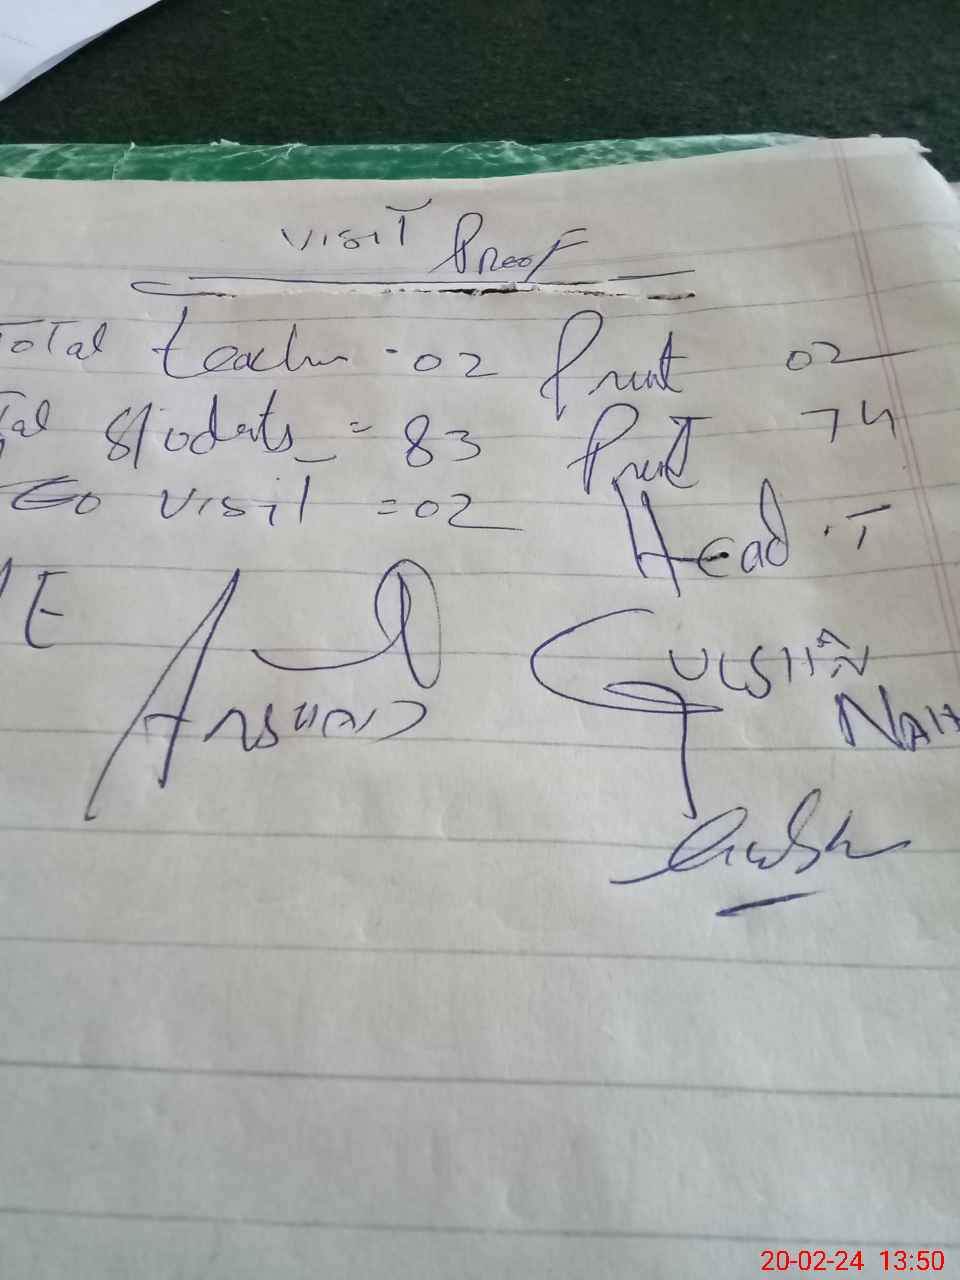 VISIT Proof
Total teacher - 02 Prent 02
Tal Students = 83 Prent 74
Eo visit = 02
Head .T
E
ARSHAD
GULSHAN
NAH
Gulsh
20-02-24 13:50